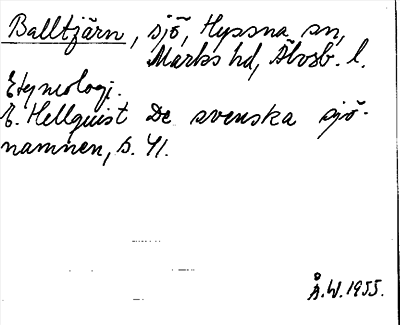 Balltjärn, sjö, Hyssna sn,
Marks hd, Älvsb. l.
Etymologi.
E. Hellquist De svenska sjö-
namnen, s. 41.
Å.W. 1955.